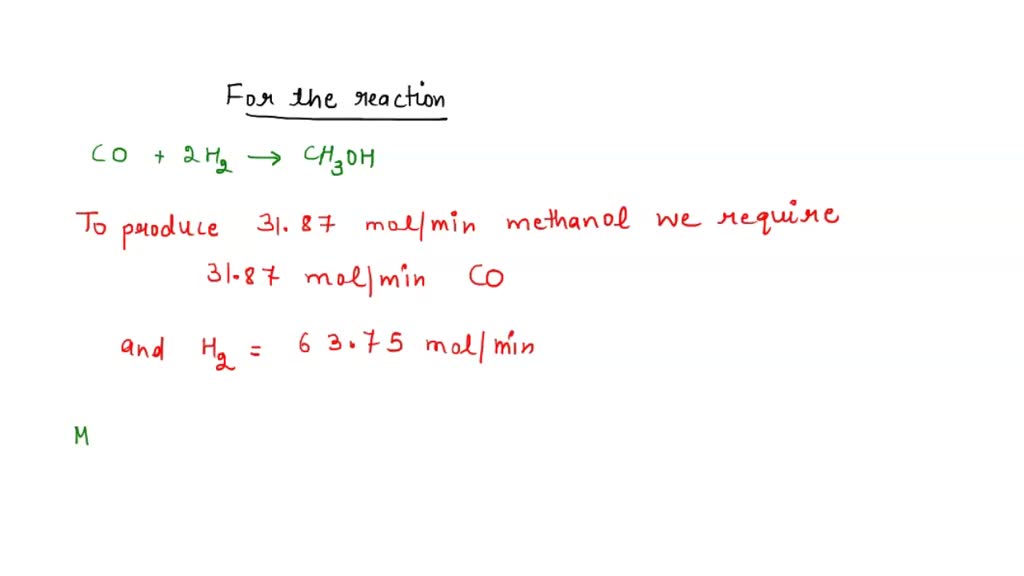 For the reaction
CO + 2H₂ → CH₃OH
To produce 31.87 mol/min methanol we require
31.87 mol/min CO
and H₂ = 63.75 mol/min
M